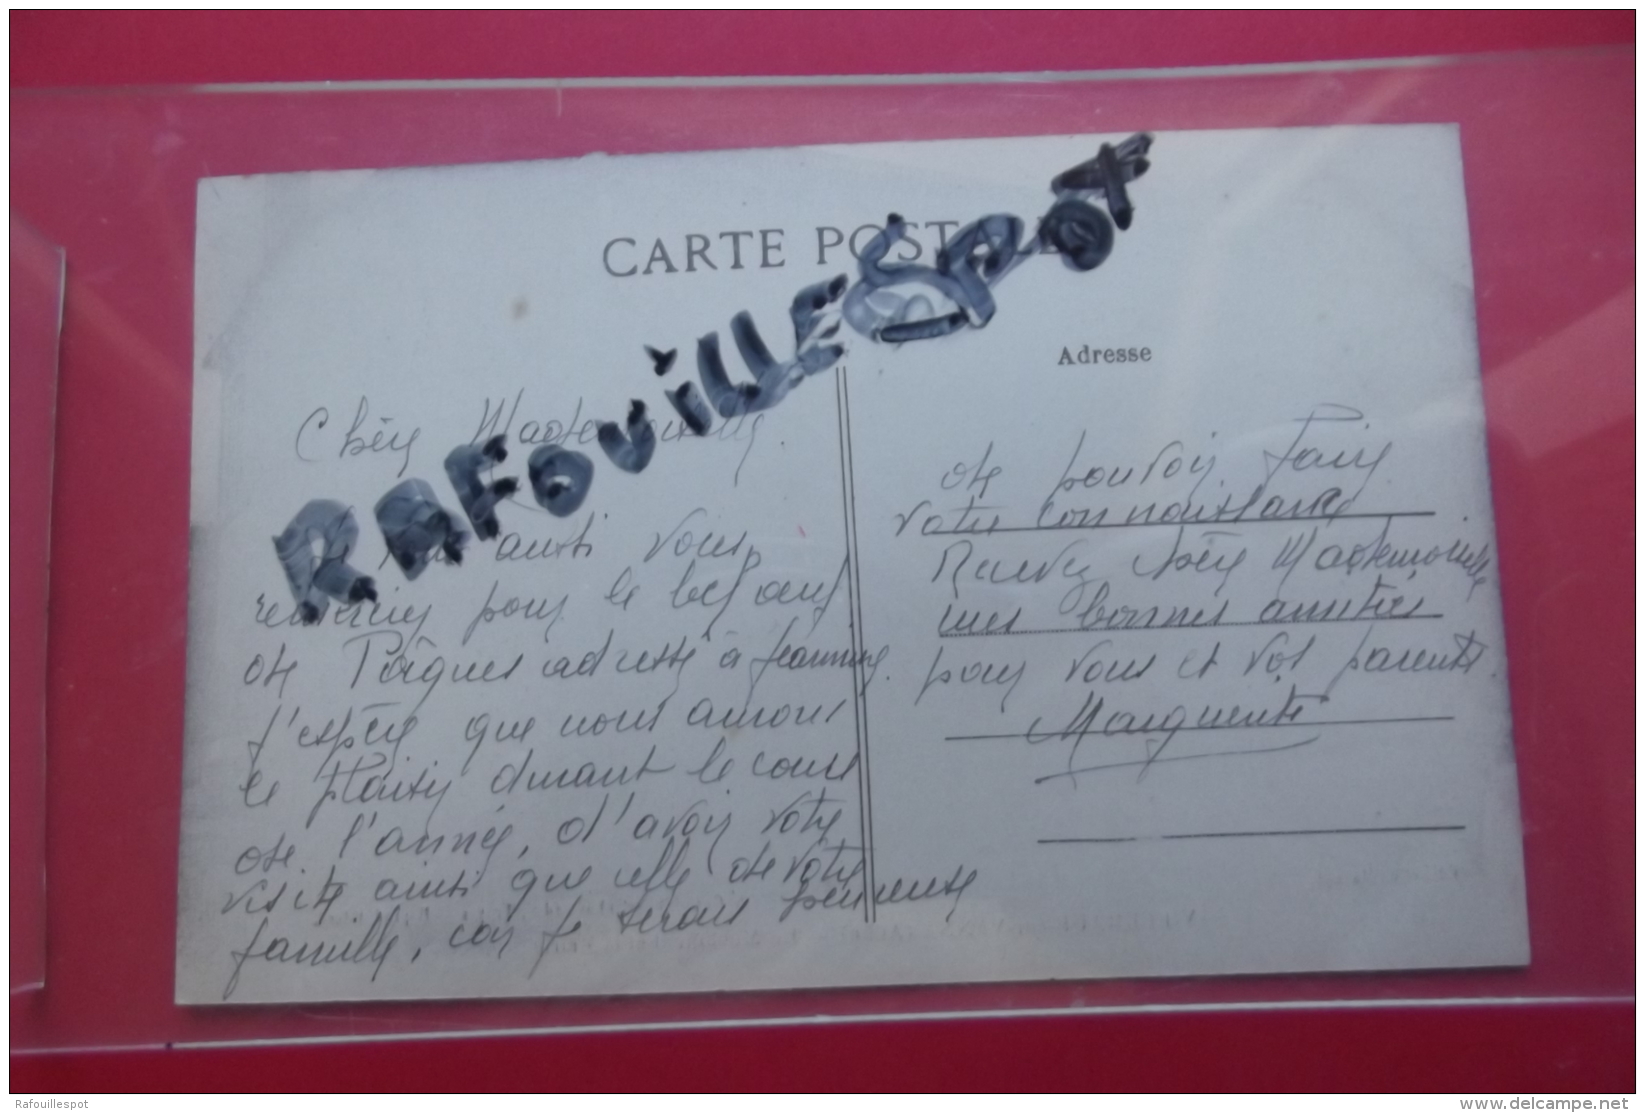 CARTE POSTALE
RAFOUILLESPOT
Adresse
Chère Mademoiselle.
aussi vous
remercier pour le bel œuf
de Pâques adressé à Jeannine.
J'espère que nous aurons
le plaisir durant le cours
de l'année, d'avoir votre
visite ainsi que celle de votre
famille, car je serais heureuse
de pouvoir faire
votre connaissance
Recevez chère Mademoiselle
mes bonnes amitiés
pour vous et vos parents.
Marguerite
Rafouillespot
delcampe.net